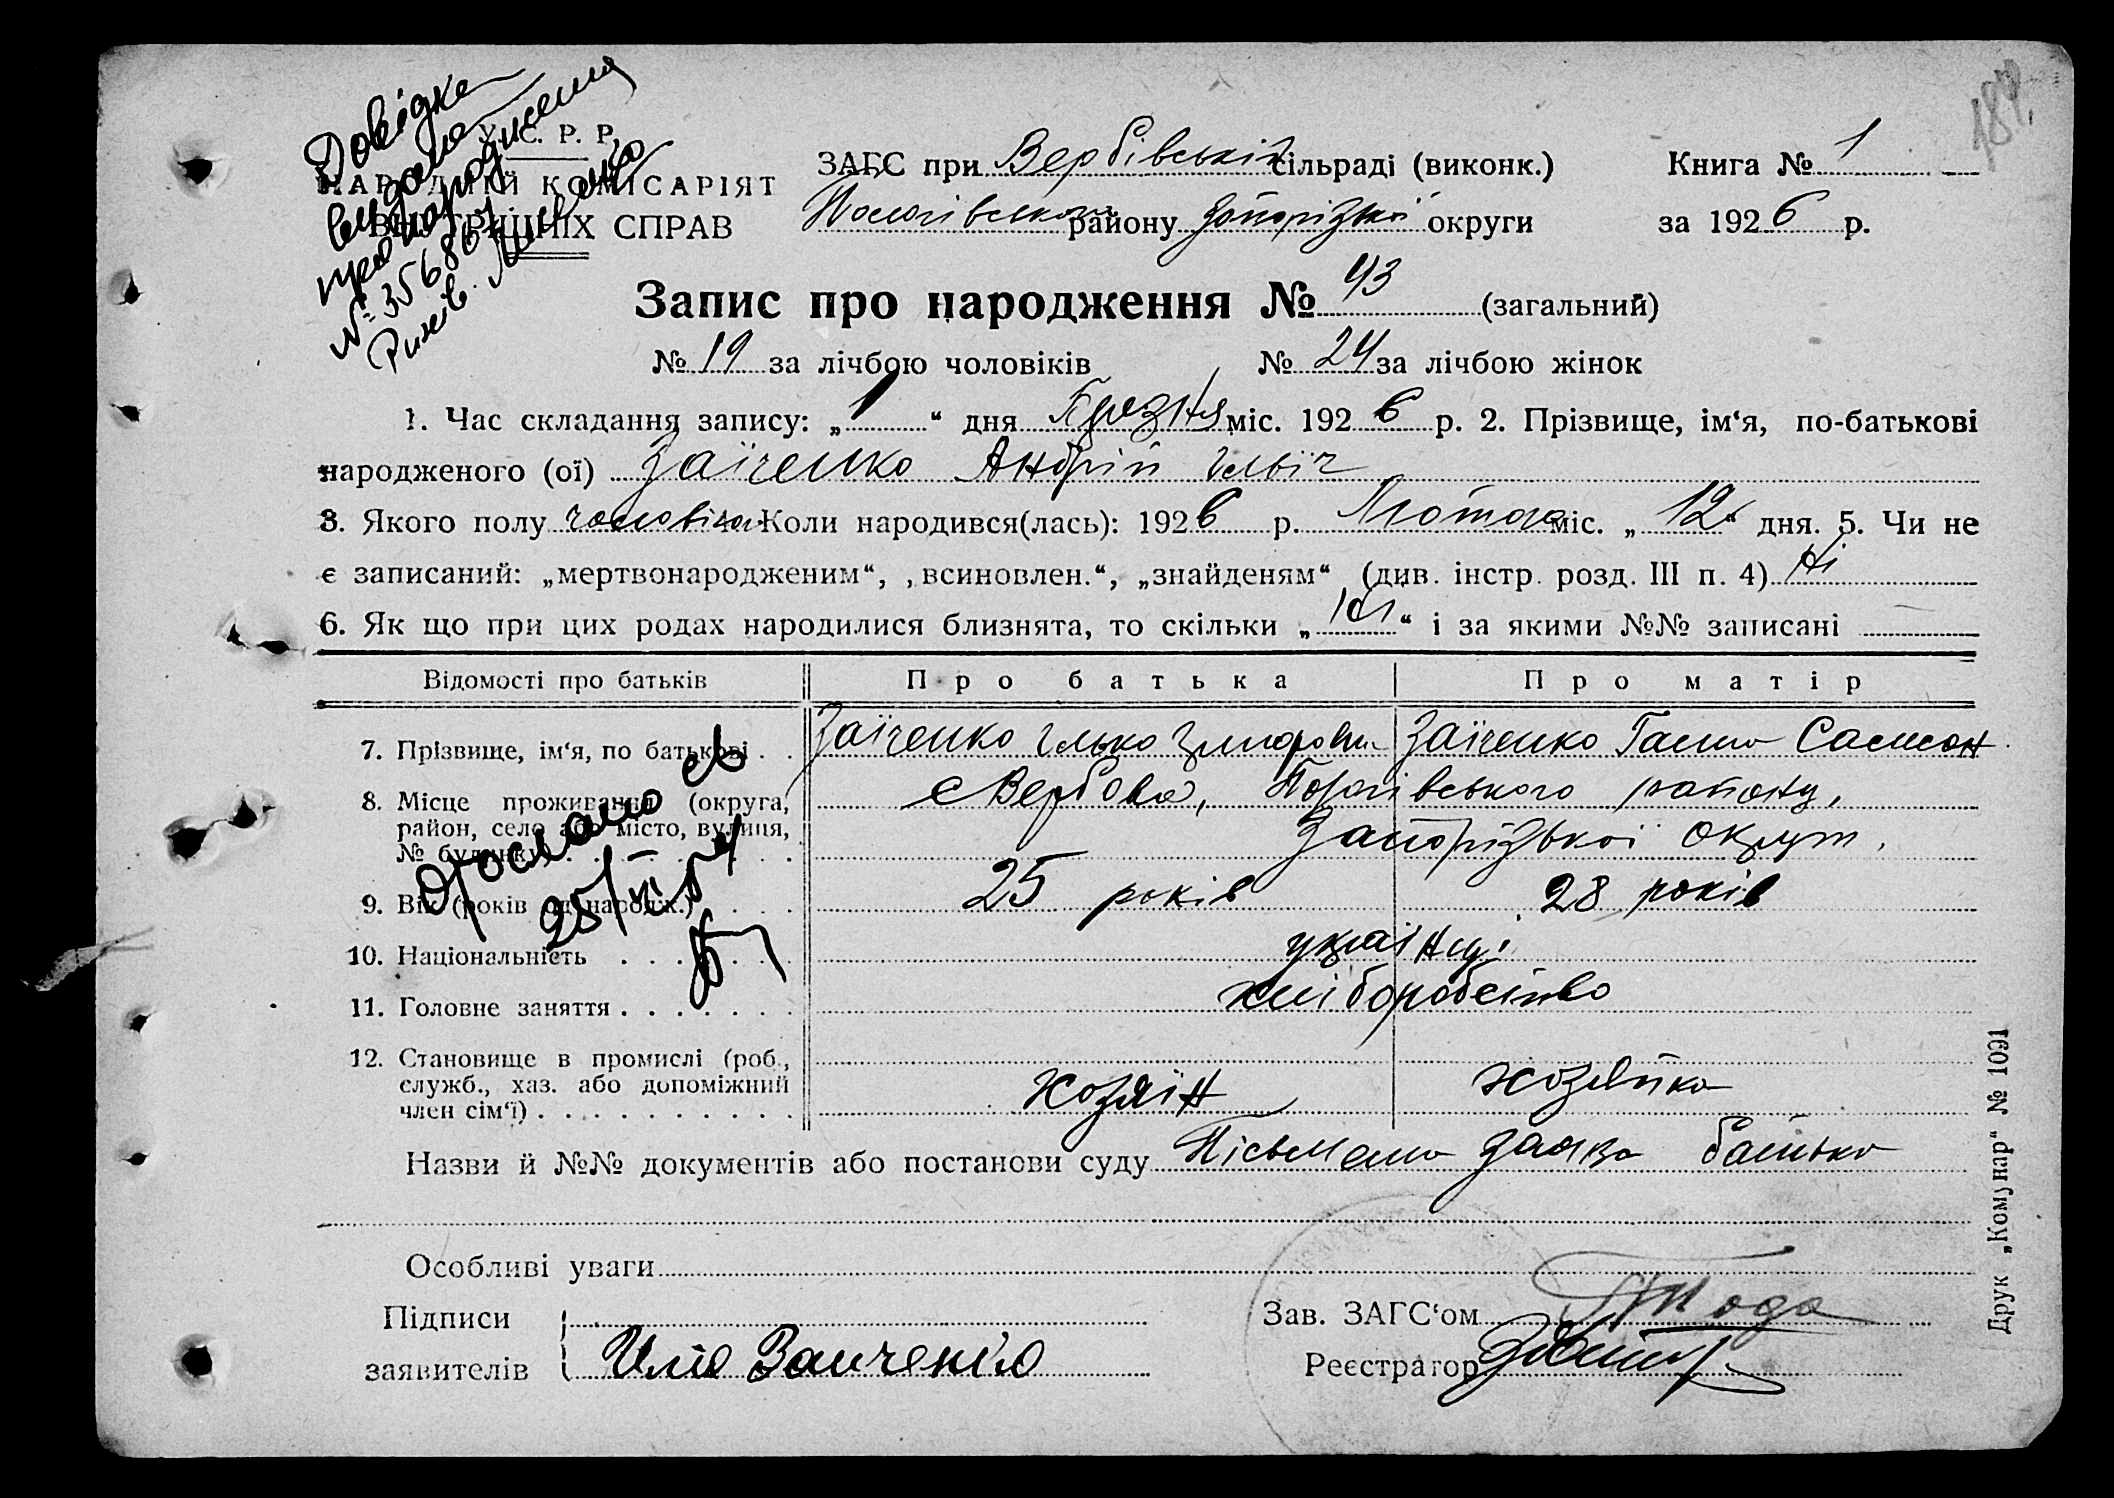 184.
Довідка
видана
про народження
№ 35686
У. С. Р. Р.
НАРОДНІЙ КОМІСАРІЯТ
ВНУТРІШНІХ СПРАВ
ЗАГС при Вербівській сільраді (виконк.) Книга № 1
Пологівського району Запорізької округи за 1926 р.
Запис про народження № 43 (загальний)
№ 19 за лічбою чоловіків № 24 за лічбою жінок
1. Час складання запису: „ 1 “ дня Березня міс. 1926 р. 2. Прізвище, ім‘я, по-батькові
народженого (ої) Заїченко Андрій Ільїч
3. Якого полу чоловічої 4. Коли народився(лась): 1926 р. Лютого міс. „ 12 “ дня. 5. Чи не
є записаний: „мертвонародженим“, „всиновлен.“, „знайденям“ (див. інстр. розд. III п. 4) Ні
6. Як що при цих родах народилися близнята, то скільки „ “ і за якими №№ записані —
Відомості про батьків Про батька Про матір
7. Прізвище, ім‘я, по батькові . . Заїченко Ілько Заїченко Ганна Самсон.
8. Місце проживання (округа, с Вербова, Пологівського району,
район, село або місто, вулиця,
№ будинку) . . . . . . . . Запорізької округи.
9. Вік (років од народж.) . . . . 25 років 28 років
10. Національність . . . . . . . українці
11. Головне заняття . . . . . . . хліборобство
12. Становище в промислі (роб.,
служб., хаз. або допоміжний
член сім‘ї) . . . . . . . . . . хозяїн хозяйка
Отослано св
25/VI 54
Назви й №№ документів або постанови суду Пісьмена заява батька
Особливі уваги
Підписи
заявителів Илья Заиченко
Зав. ЗАГС‘ом
Реєстратор
Друк „Комунар“ № 1091